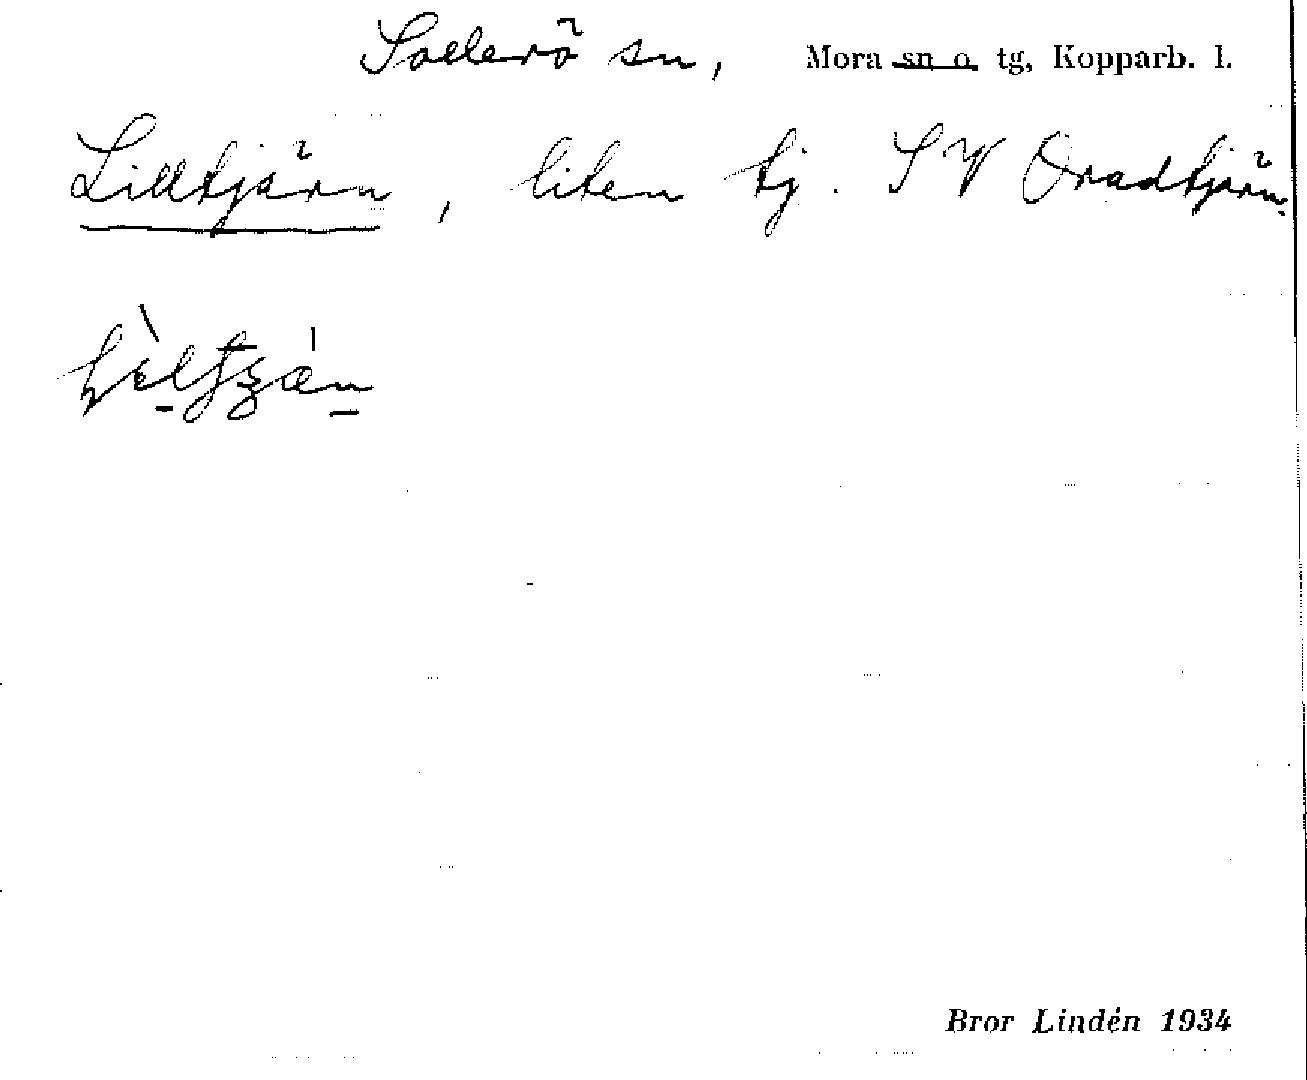 Sollerö sn, Mora sn o. tg, Kopparb. l.
Lilltjärn, liten tj. SV Oradtjärn.
Bror Lindén 1934